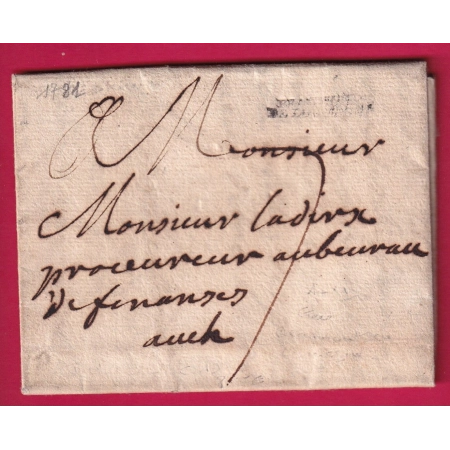 1781
A Monsieur
Monsieur ladirx
proceureur aubeurau
de finanses
auch
7